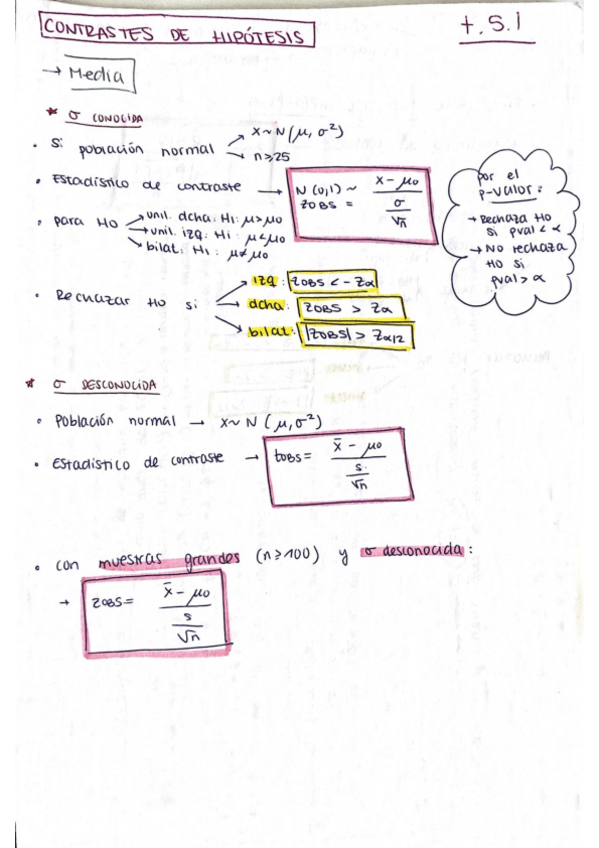 CONTRASTES DE HIPÓTESIS
t.S.I
→ Media
* σ CONOCIDA
• Si población normal → X~N(μ, σ²)
→ n≥25
• Estadístico de contraste → N(0,1) ~
ZOBS = x̄ - μ0 / σ/√n
• para H0 → unil. dcha: H1: μ>μ0
→ unil. izq: H1: μ<μ0
→ bilat: H1: μ≠μ0
• Rechazar H0 si → izq: ZOBS < -Zα
→ dcha: ZOBS > Zα
→ bilat: |ZOBS| > Zα/2
por el
p-valor:
→ Rechaza H0
si pval < α
→ NO rechaza
H0 si
pval > α
* σ DESCONOCIDA
• Población normal → X~N(μ,σ²)
• Estadístico de contraste → tOBS = x̄ - μ0 / s/√n
• con muestras grandes (n≥100) y σ desconocida:
→ ZOBS = x̄ - μ0 / s/√n